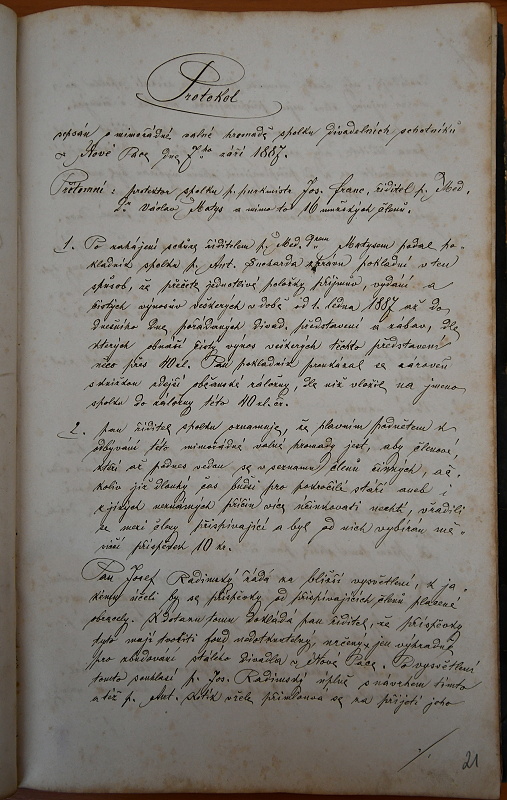 Protokol
sepsán o mimořádné valné hromadě spolku divadelních ochotníků
v Nové Pace dne 7ho září 1887.
Přítomni: protektor spolku p. purkmistr Jos. Franc, ředitel p. Med.
Dr Václav Matys a mimo to 16 mužských členů.
1. Po zahájení schůze ředitelem p. Med. Drem Matysem podal po-
kladník spolku p. Ant. zprávu pokladní v ten
způsob, že přečetl jednotlivé položky příjmů, vydání a
čistých výnosův veškerých v době od 1. ledna 1887 až do
dnešního dne pořádaných divad. představení a zábav, dle
kterých obnáší čistý výnos veškerých těchto představení
něco přes 40 zl. Pan pokladník prokázal se zároveň
s knížkou zdejší občanské záložny, dle níž vložil na jméno
spolku do záložny této 40 zl. č.
2. pan ředitel spolku oznamuje, že hlavním podnětem k
odbývání této mimořádné valné hromady jest, aby členové,
kteří až podnes vedou se v seznamu členů činných, ač-
koliv již dlouhý čas buďsi pro pokročilé stáří aneb i
z jiných neznámých příčin více účinkovati nechtí, vřadili
se mezi členy přispívající a byl od nich vybírán mě-
síční příspěvek 10 kr.
Pan Josef Radimský žádá za bližší vysvětlení, k ja-
kému účeli by se příspěvky od přispívajících členů placené
obracely. K dotazu tomu dokládá pan ředitel, že příspěvky
tyto mají tvořiti fond nedotknutelný, určený jen výhradně
pro zbudování stálého divadla v Nové Pace. Po vysvětlení
tomto souhlasí p. Jos. Radimský úplně s návrhem tímto
a též p. Ant. Kotík vřele přimlouvá se za přijetí jeho
./.
21